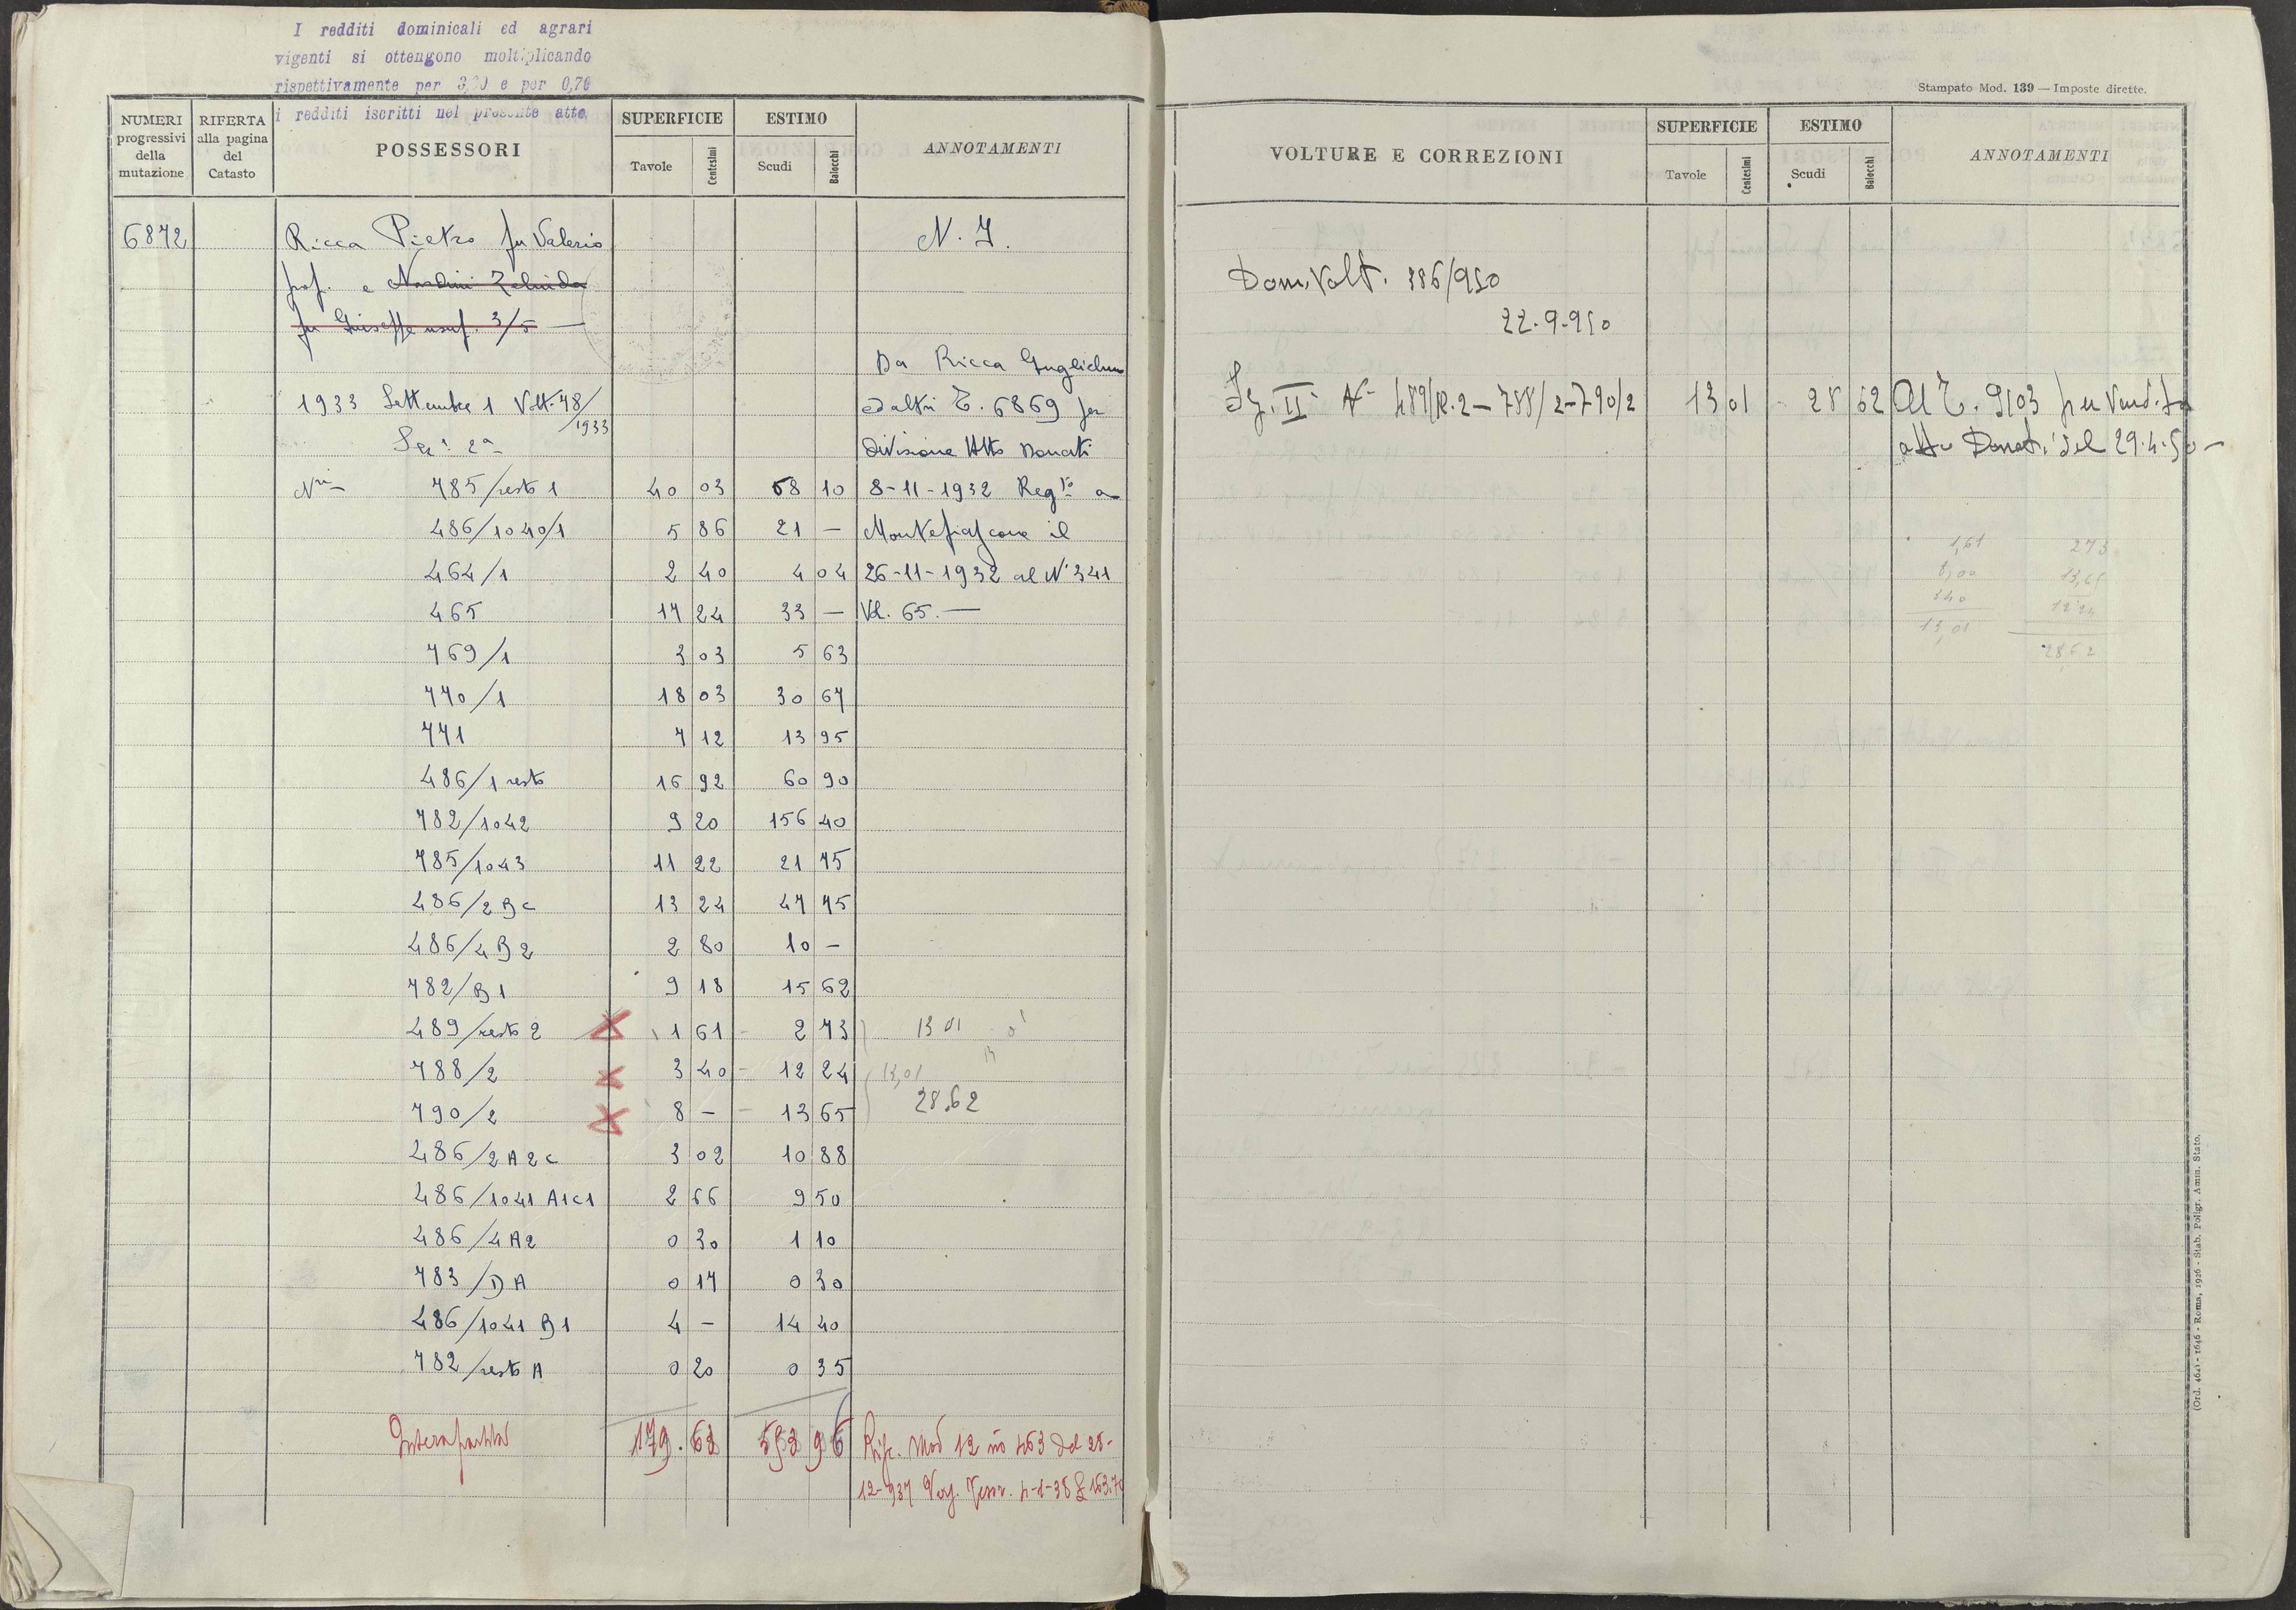 I redditi dominicali ed agrari
vigenti si ottengono moltiplicando
rispettivamente per 3,20 e per 0,70
i redditi iscritti nel presente atto
NUMERI progressivi della mutazione
RIFERTA alla pagina del Catasto
POSSESSORI
SUPERFICIE
Tavole Centesimi
ESTIMO
Scudi Baiocchi
ANNOTAMENTI
6872 Ricca Pietro fu Valerio N. I.
prop. e Nardini Zelinda
fu Giuseppe usuf. 3/5 —
Da Ricca Guglielmo
1933 Settembre 1 Volt. 48/1933 ed altri T. 6869 per
Sez. 2a divisione Atto Donati
Nri 785/resto 1 40 03 68 10 8-11-1932 Regto a
486/1040/1 5 86 21 — Montefiascone il
464/1 2 40 4 04 26-11-1932 al N° 341
465 17 24 33 — Vol. 65. —
769/1 3 03 5 63
770/1 18 03 30 67
771 7 12 13 95
486/1 resto 16 92 60 90
782/1042 9 20 156 40
785/1043 11 22 21 75
486/2 B c 13 24 47 75
486/4 B 2 2 80 10 —
782/B 1 9 18 15 62
489/resto 2 X 1 61 2 73 13 01
788/2 X 3 40 12 24 13,01
790/2 X 8 — 13 65 28.62
486/2 A 2 c 3 02 10 88
486/1041 A1c1 2 66 9 50
486/4 A2 0 30 1 10
783/D A 0 17 0 30
486/1041 B1 4 — 14 40
782/resto A 0 20 0 35
Intera partita 179.63 593 96 Rife. Mod 12 no 463 del 28-
12-937
Stampato Mod. 139 — Imposte dirette.
VOLTURE E CORREZIONI
SUPERFICIE
Tavole Centesimi
ESTIMO
Scudi Baiocchi
ANNOTAMENTI
Dom. Volt. 386/950
22.9.950
Sez. II N 489/R.2 — 788/2 — 790/2 13 01 28 62 Al T. 9103 per Vendita
atto Donati del 29.4.50 —
1,61 273
8,00 13,65
340 12 24
13,01 2862
(Ord. 4641 - 1646 - Roma, 1926 - Stab. Poligr. Amm. Stato.